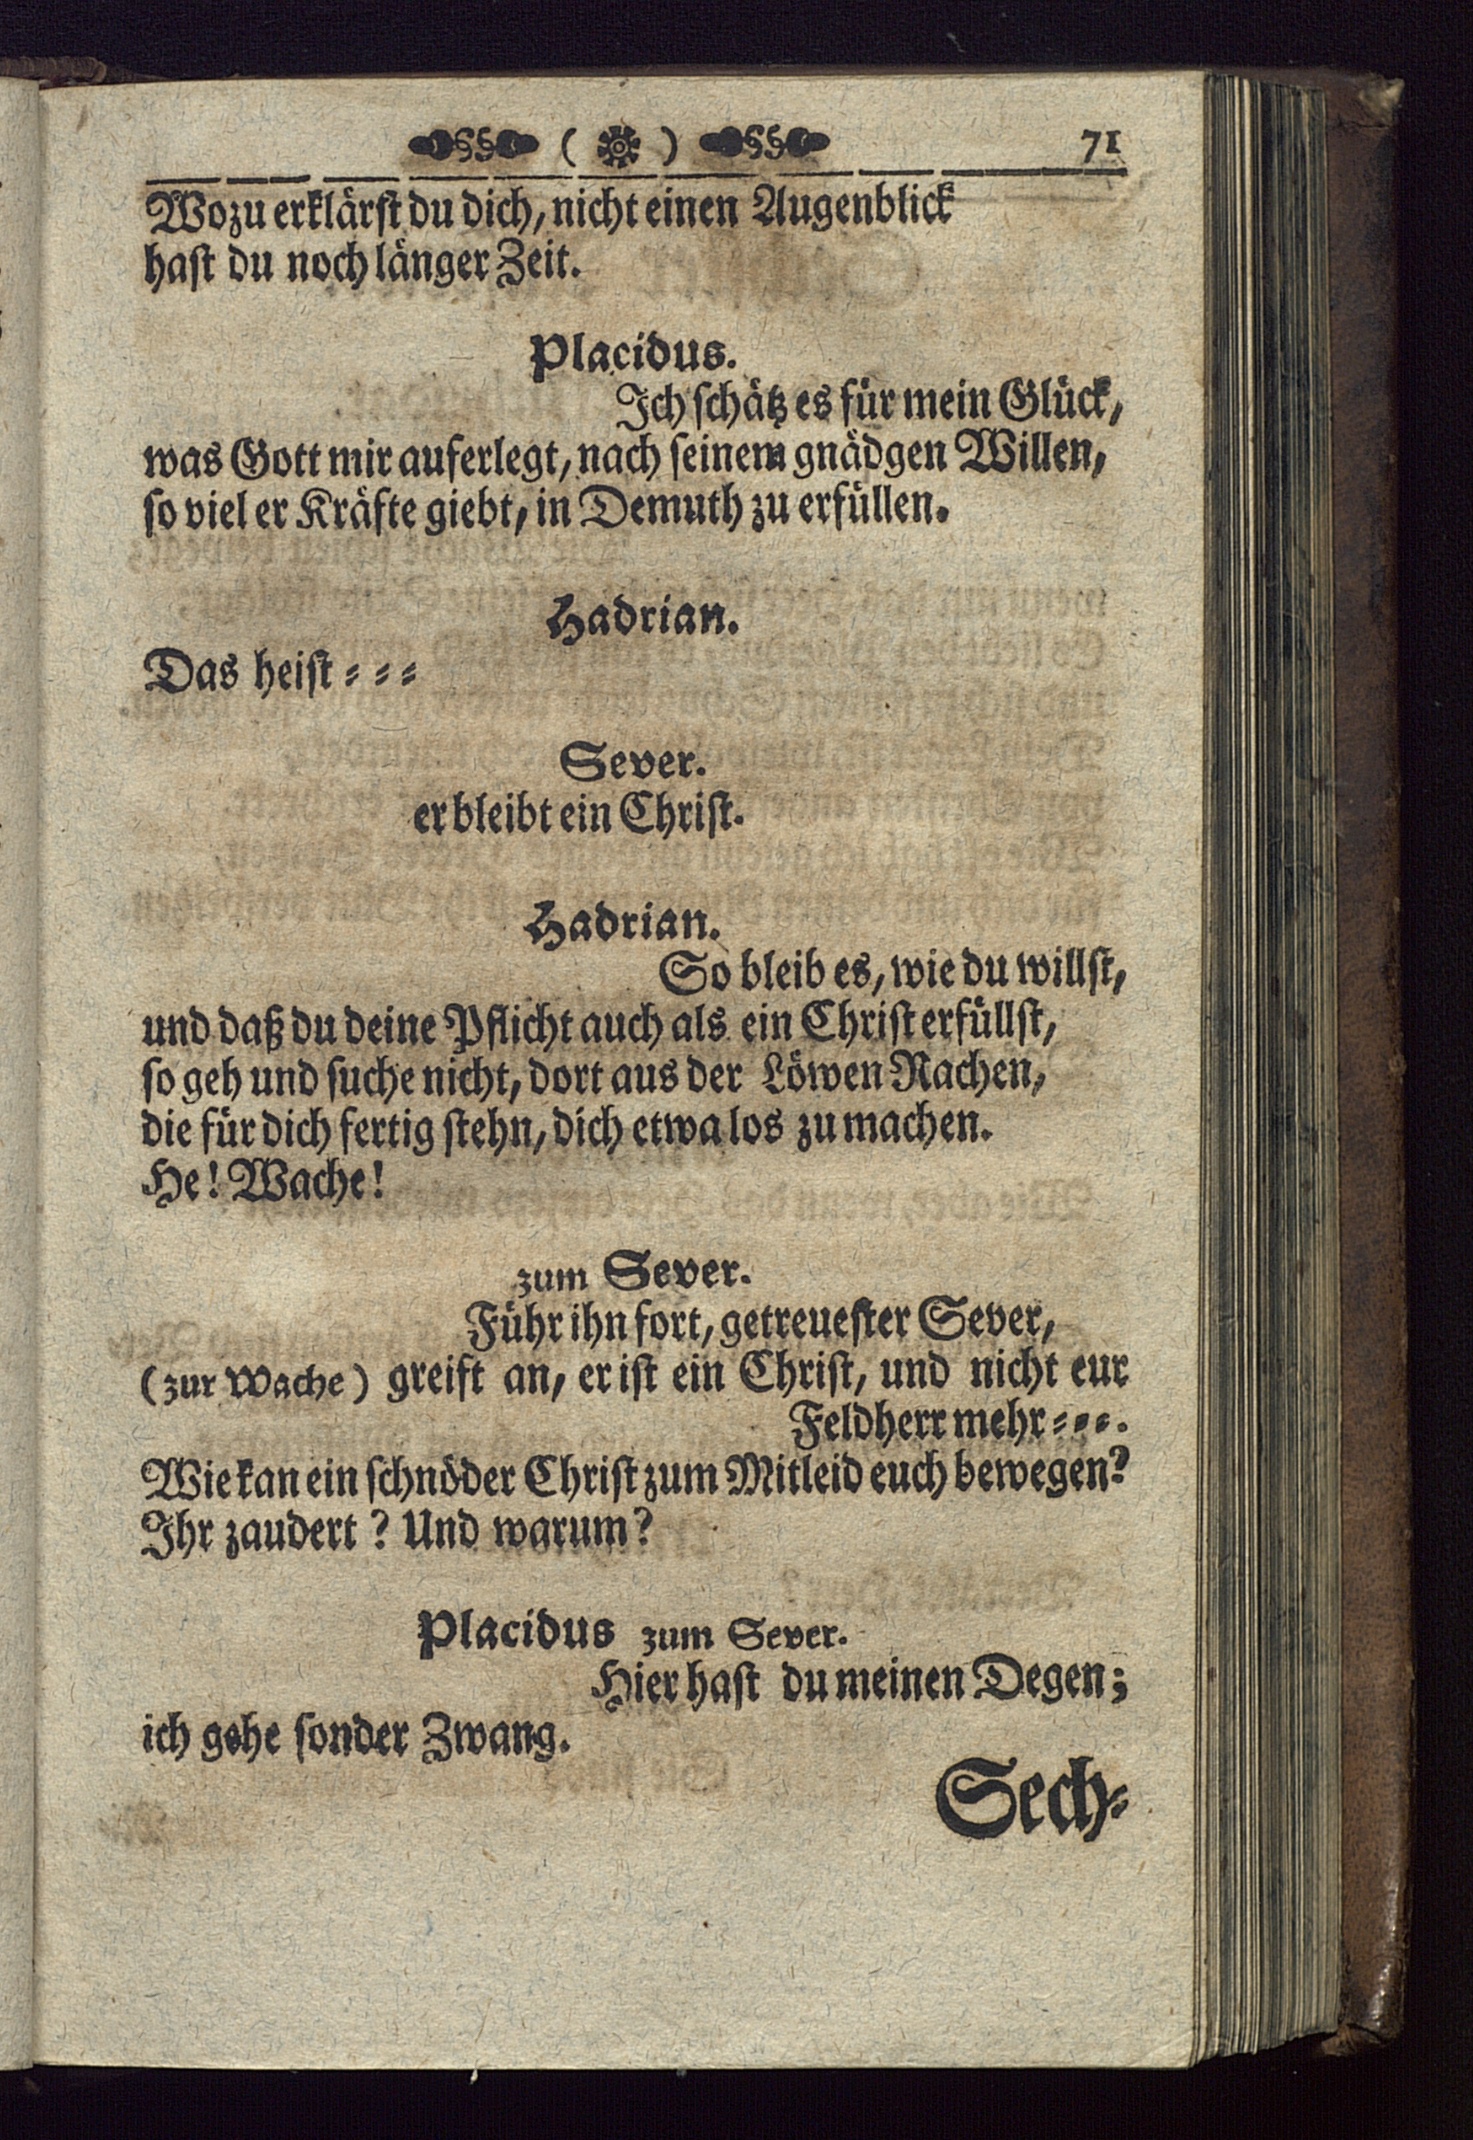 §§ ( ) §§ 71
Wozu erklärst du dich, nicht einen Augenblick
hast du noch länger Zeit.
Placidus.
Ich schätz es für mein Glück,
was Gott mir auferlegt, nach seinem gnädgen Willen,
so viel er Kräfte giebt, in Demuth zu erfüllen.
Hadrian.
Das heist - - -
Sever.
er bleibt ein Christ.
Hadrian.
So bleib es, wie du willst,
und daß du deine Pflicht auch als ein Christ erfüllst,
so geh und suche nicht, dort aus der Löwen Rachen,
die für dich fertig stehn, dich etwa los zu machen.
He! Wache!
zum Sever.
Führ ihn fort, getreuester Sever,
(zur Wache) greift an, er ist ein Christ, und nicht eur
Feldherr mehr - - -.
Wie kan ein schnöder Christ zum Mitleid euch bewegen?
Ihr zaudert? Und warum?
Placidus zum Sever.
Hier hast du meinen Degen;
ich gehe sonder Zwang.
Sech-